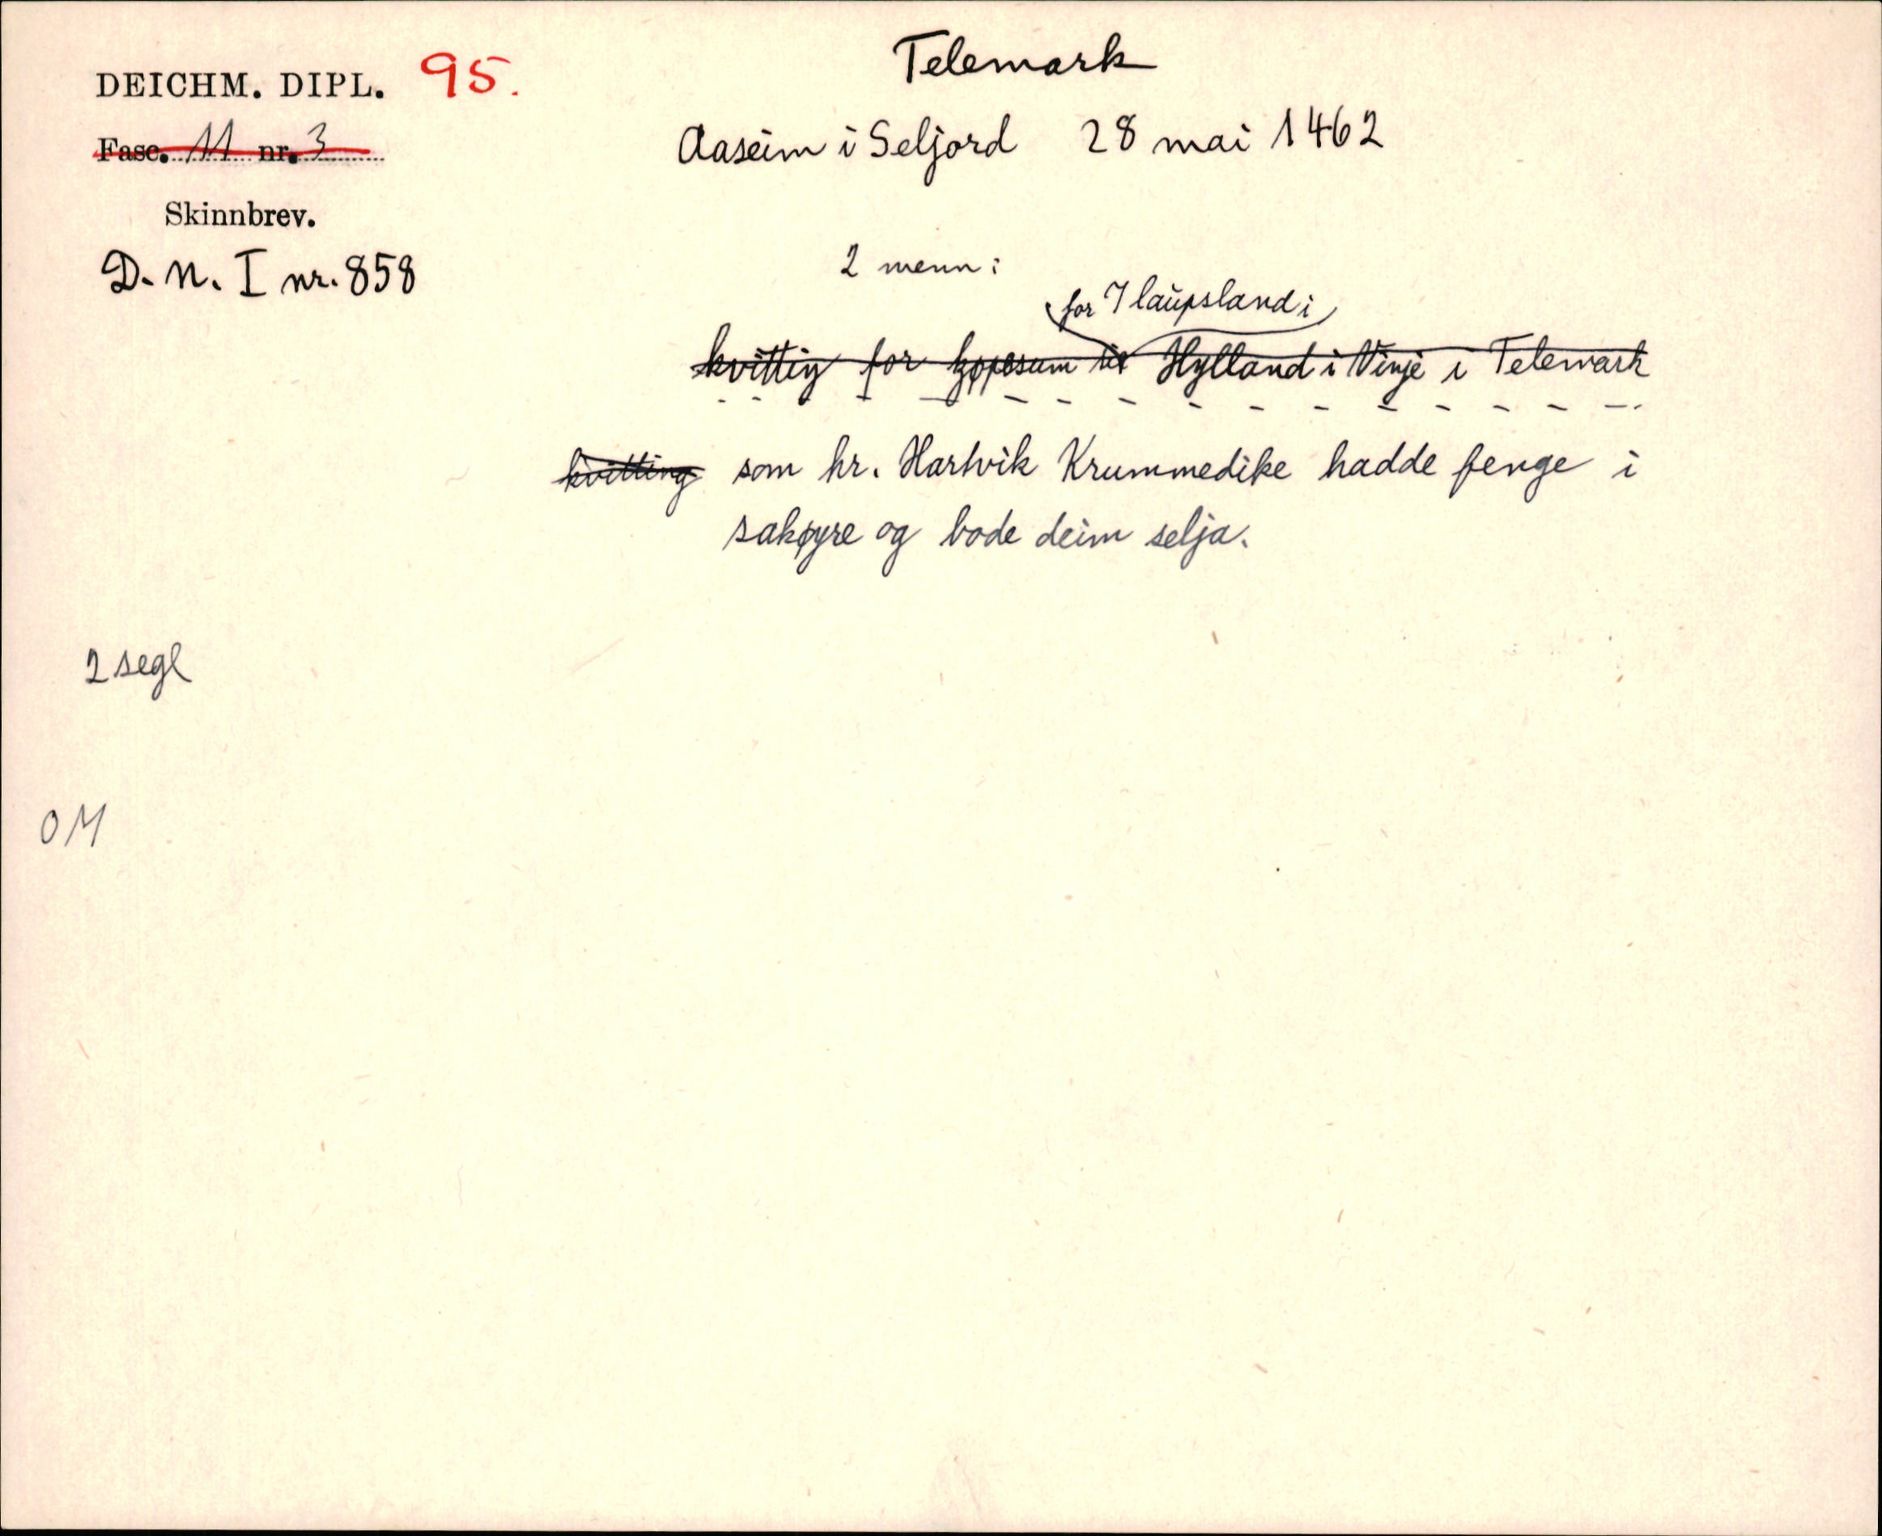 DEICHM. DIPL. 95.
Fasc. 11 nr. 3
Skinnbrev.
D. N. I nr. 858
Telemark
Aaseim i Seljord 28 mai 1462
2 menn:
for 7 laupsland i
kvittig for kjøpesum til Hylland i Vinje i Telemark
kvitting som hr. Hartvik Krummedike hadde fenge i
sakøyre og bode deim selja.
2 segl
OM